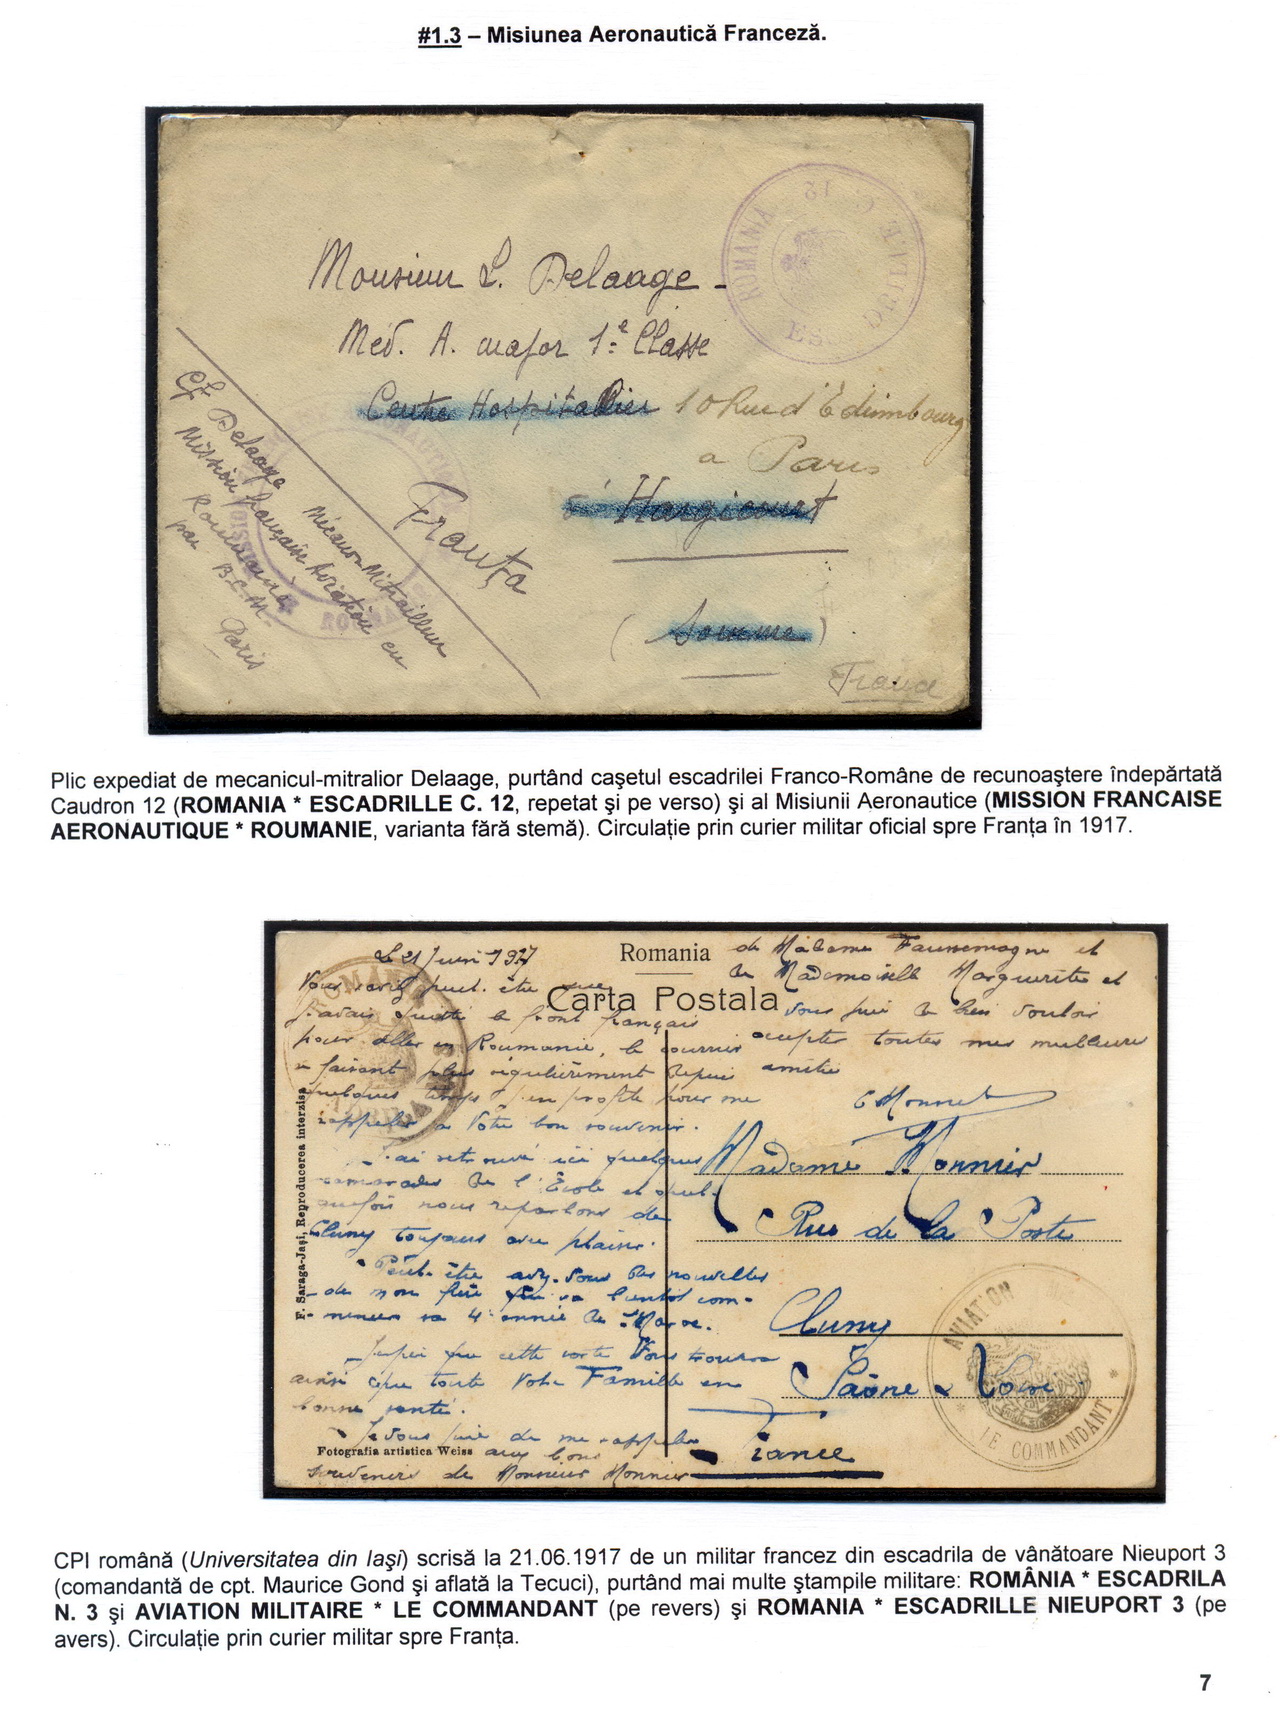 #1.3 – Misiunea Aeronautică Franceză.
ROMANIA C. 12 ESCADRILLE
Monsieur L. Delaage -
Méd. A. major 1e Classe
Centre Hospitalier 10 Rue d'Edimbourg
a Paris
Hargicourt
(Somme)
France
Franța
Delaage
Mécano Mitrailleur
Mission française Aviation en
Roumanie
par B.C.M.
Paris
Plic expediat de mecanicul-mitralior Delaage, purtând caşetul escadrilei Franco-Române de recunoaştere îndepărtată
Caudron 12 (ROMANIA * ESCADRILLE C. 12, repetat şi pe verso) şi al Misiunii Aeronautice (MISSION FRANCAISE
AERONAUTIQUE * ROUMANIE, varianta fără stemă). Circulaţie prin curier militar oficial spre Franţa în 1917.
Romania
Carta Postala
Le 21 Juin 1917
Vous savez peut-être que
j'avais quitté le front français
pour aller en Roumanie, le courrier
se faisant plus régulièrement depuis
quelques temps j'en profite pour me
rappeler à votre bon souvenir.
J'ai retrouvé ici quelques
camarades de l'École et quel-
quefois nous reparlons de
Cluny toujours avec plaisir.
Peut-être avez-vous des nouvelles
de mon frère qui va bientôt com-
mencer sa 4e année de Maroc.
J'espère que cette carte vous trouvera
ainsi que toute votre Famille en
bonne santé.
Je vous prie de me rappeler
aux bons
souvenirs de Monsieur Monnier
de Madame et
de Mademoiselle Marguerite et
vous prie de bien vouloir
accepter toutes mes meilleures
amitiés
Madame Monnier
Rue de la Poste
Cluny
Saône & Loire
France
AVIATION
* LE COMMANDANT *
F. Saraga-Jaşi, Reproducerea interzisa
Fotografia artistica Weiss
CPI română (Universitatea din Iaşi) scrisă la 21.06.1917 de un militar francez din escadrila de vânătoare Nieuport 3
(comandantă de cpt. Maurice Gond şi aflată la Tecuci), purtând mai multe ştampile militare: ROMÂNIA * ESCADRILA
N. 3 şi AVIATION MILITAIRE * LE COMMANDANT (pe revers) şi ROMANIA * ESCADRILLE NIEUPORT 3 (pe
avers). Circulaţie prin curier militar spre Franţa.
7